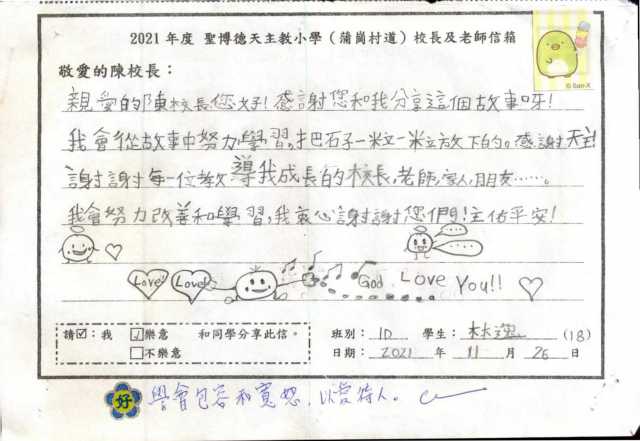 2021 年度 聖博德天主教小學（蒲崗村道）校長及老師信箱
© San-X
敬愛的陳校長：
親愛的陳校長您好！感謝您和我分享這個故事呀！
我會從故事中努力學習，把石子一粒一粒放下的。感謝天主！
謝謝每一位教導我成長的校長，老師，家人，朋友……。
我會努力改善和學習，我衷心謝謝您們！主佑平安！
Love! Love! God Love You!!
請☑：我 ☑樂意 和同學分享此信。
□不樂意
班別：1D 學生：林 (18)
日期：2021 年 11 月 26 日
好 學會包容和寬恕，以愛待人。